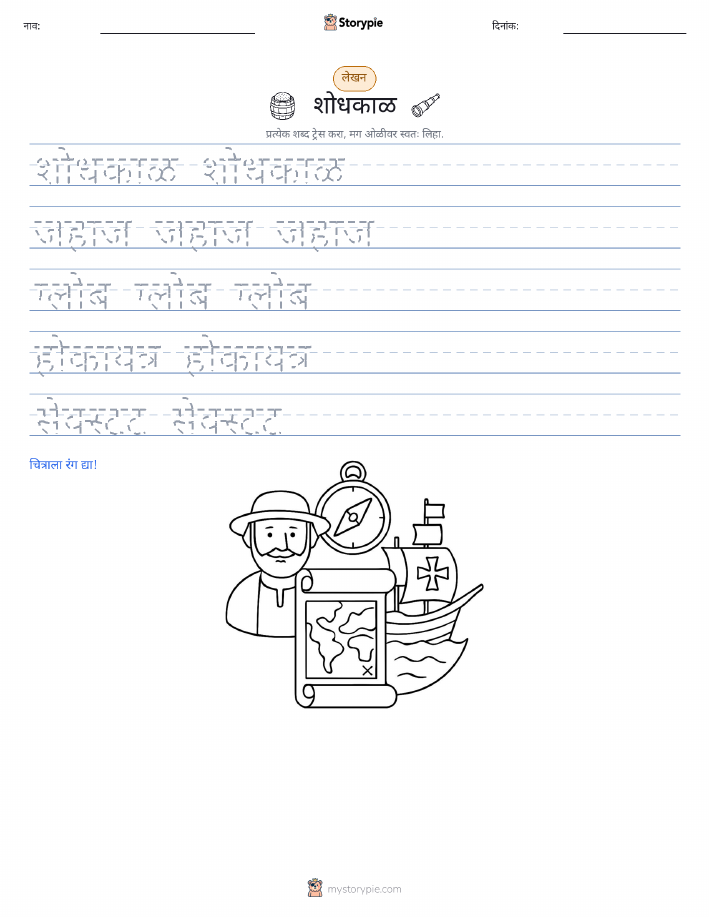 नाव:
Storypie
दिनांक:
लेखन
शोधकाळ
प्रत्येक शब्द ट्रेस करा, मग ओळीवर स्वतः लिहा.
शोधकाळ शोधकाळ
जहाज जहाज जहाज
ग्लोब ग्लोब ग्लोब
होकायत्र होकायत्र
सेक्स्टट सेक्स्टट
चित्राला रंग द्या!
mystorypie.com